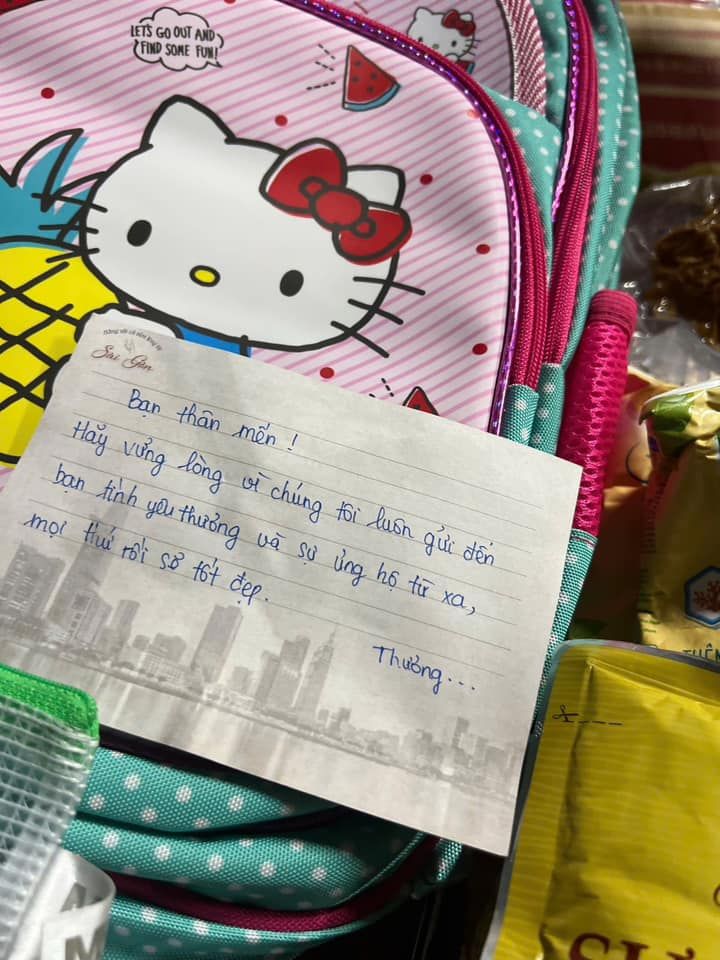 LET'S GO OUT AND
FIND SOME FUN!
Sài Gòn
Bạn thân mến !
Hãy vững lòng vì chúng tôi luôn gửi đến
bạn tình yêu thương và sự ủng hộ từ xa,
mọi thứ rồi sẽ tốt đẹp.
Thương...